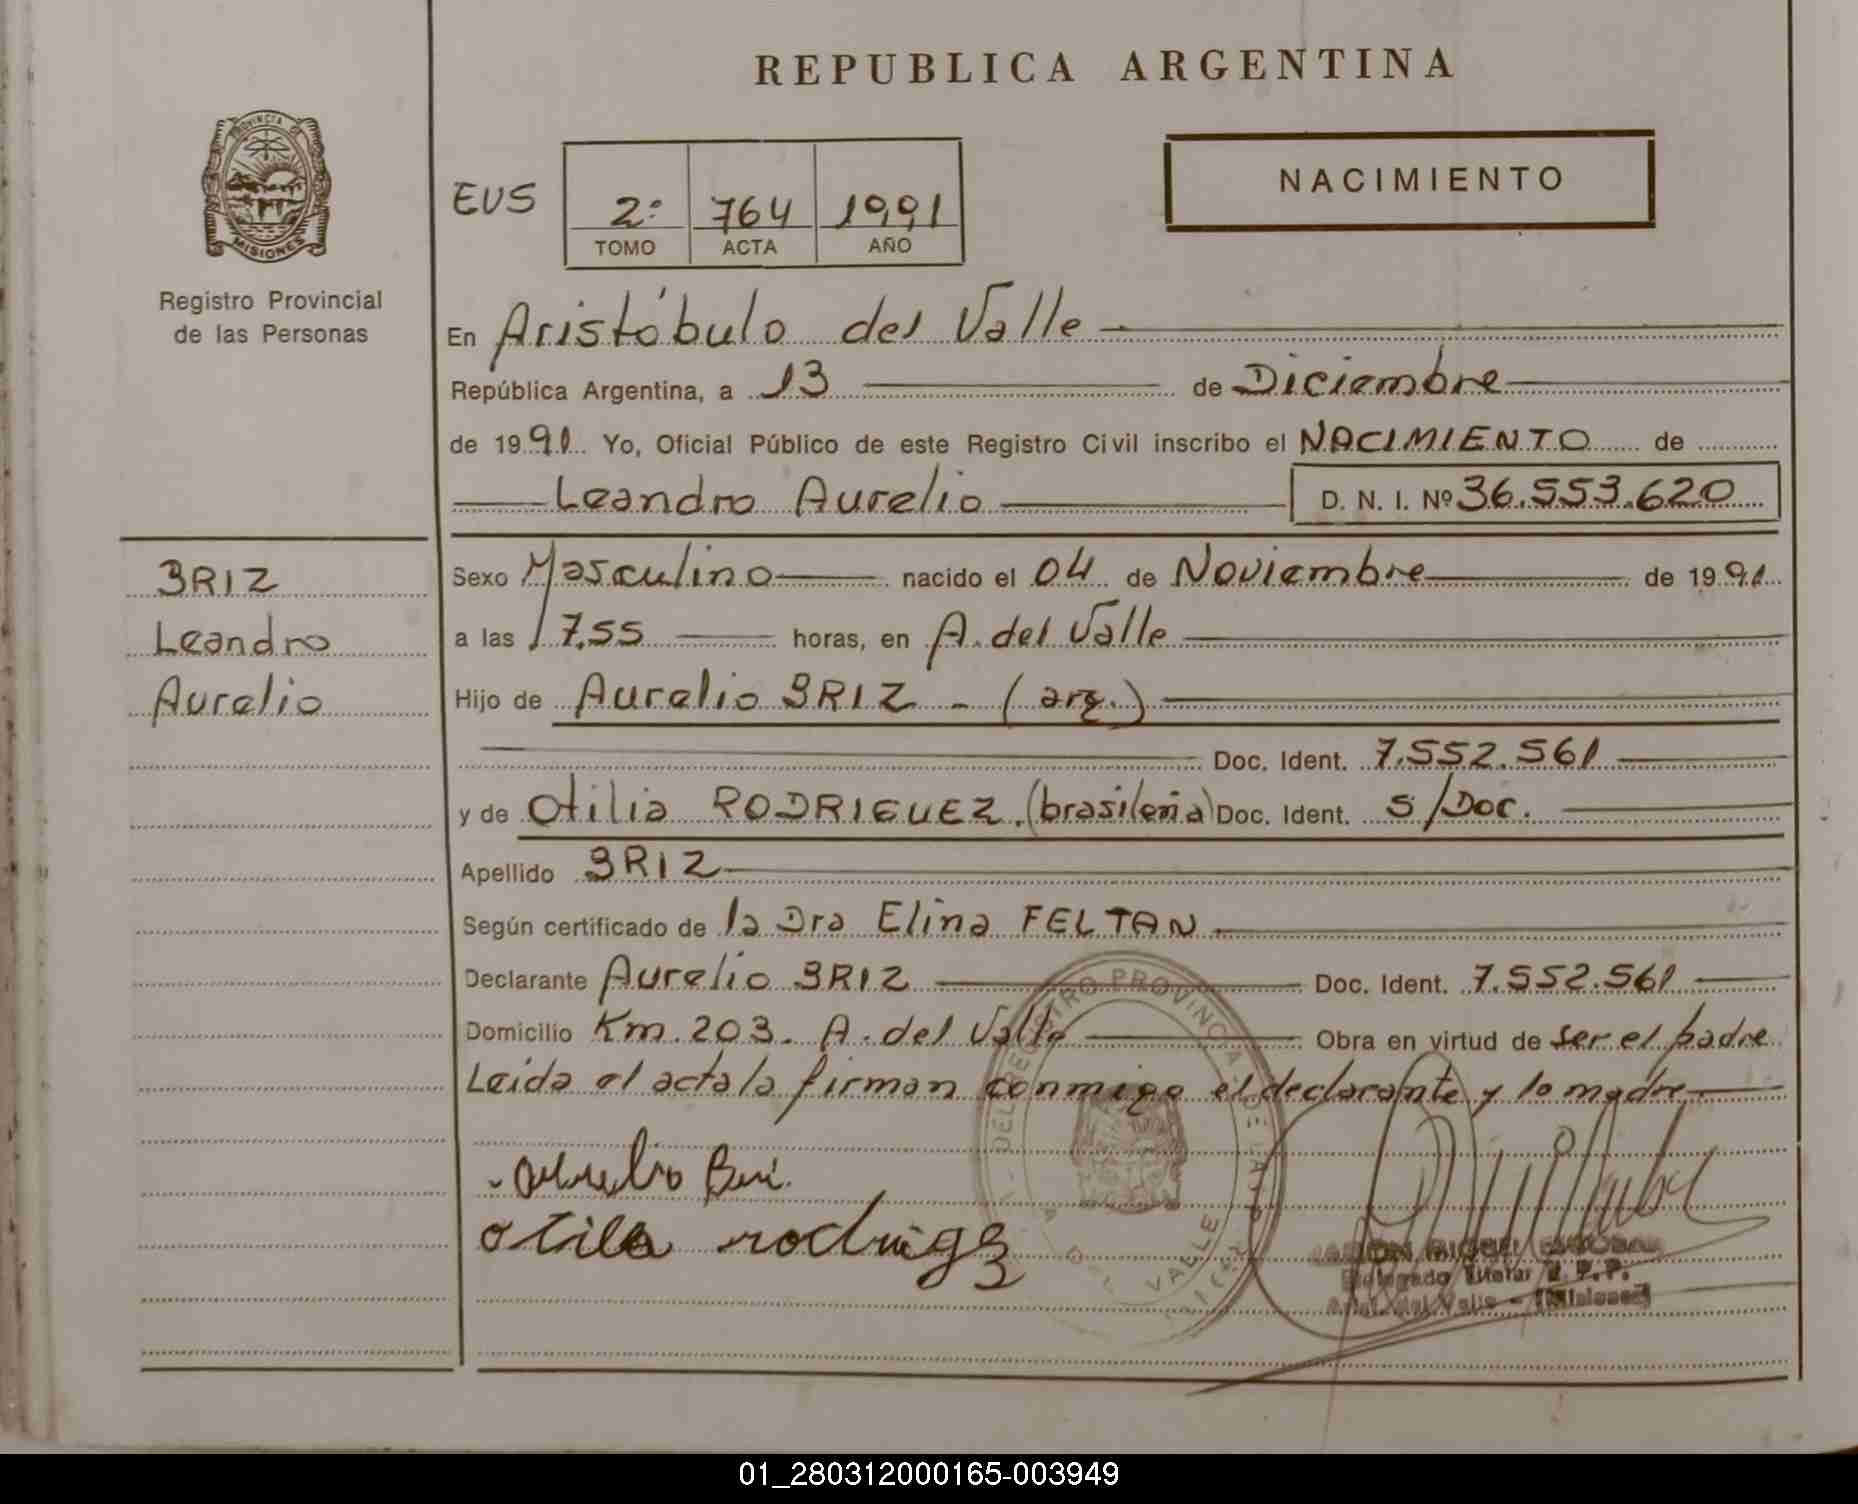 REPUBLICA ARGENTINA
PROVINCIA DE
MISIONES
Registro Provincial
de las Personas
EUS
2º 764 1991
TOMO ACTA AÑO
NACIMIENTO
En Aristóbulo del Valle
República Argentina, a 13 de Diciembre
de 1991 Yo, Oficial Público de este Registro Civil inscribo el NACIMIENTO de
Leandro Aurelio D. N. I. Nº 36.553.620
BRIZ
Leandro
Aurelio
Sexo Masculino nacido el 04 de Noviembre de 1991
a las 17,55 horas, en A. del Valle
Hijo de Aurelio BRIZ - (arg.)
Doc. Ident. 7.552.561
y de Otilia RODRIGUEZ. (brasileña) Doc. Ident. S/Doc.
Apellido BRIZ
Según certificado de la Dra Elina FELTAN
Declarante Aurelio BRIZ Doc. Ident. 7.552.561
Domicilio Km. 203. A. del Valle Obra en virtud de ser el padre
Leida el acta la firman conmigo el declarante y la madre
DEL REGISTRO PROVINCIAL DE LAS
VALLE
Aurelio Briz
otilia rodrigez
RAMON MIGUEL ESCOBAR
Delegado Titular R.P.P.
Arist. del Valle - (Misiones)
01_280312000165-003949